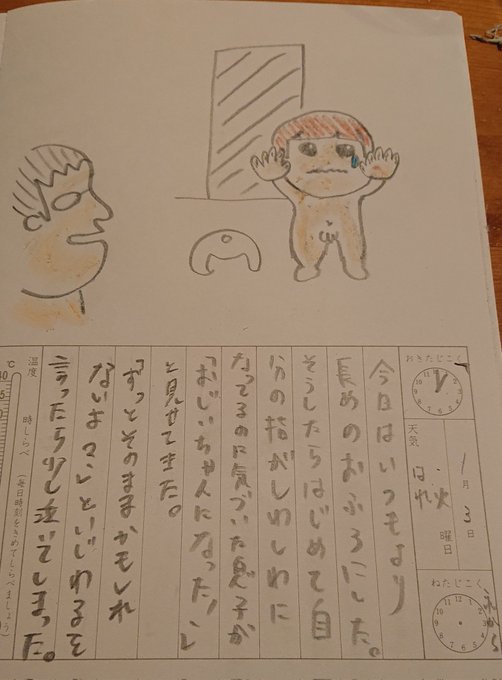 おきたじこく
1月3日
火曜日
天気
はれ
ねたじこく
今日はいつもより
長めのおふろにした。
そうしたらはじめて自
分の指がしわしわに
なってるのに気づいた息子が
「おじいちゃんになった!」
と見せてきた。
「ずっとそのままかもしれ
ないよ」といじわるを
言ったら少し泣いてしまった。
温度
時しらべ
(毎日時刻をきめてしらべましょう)
℃